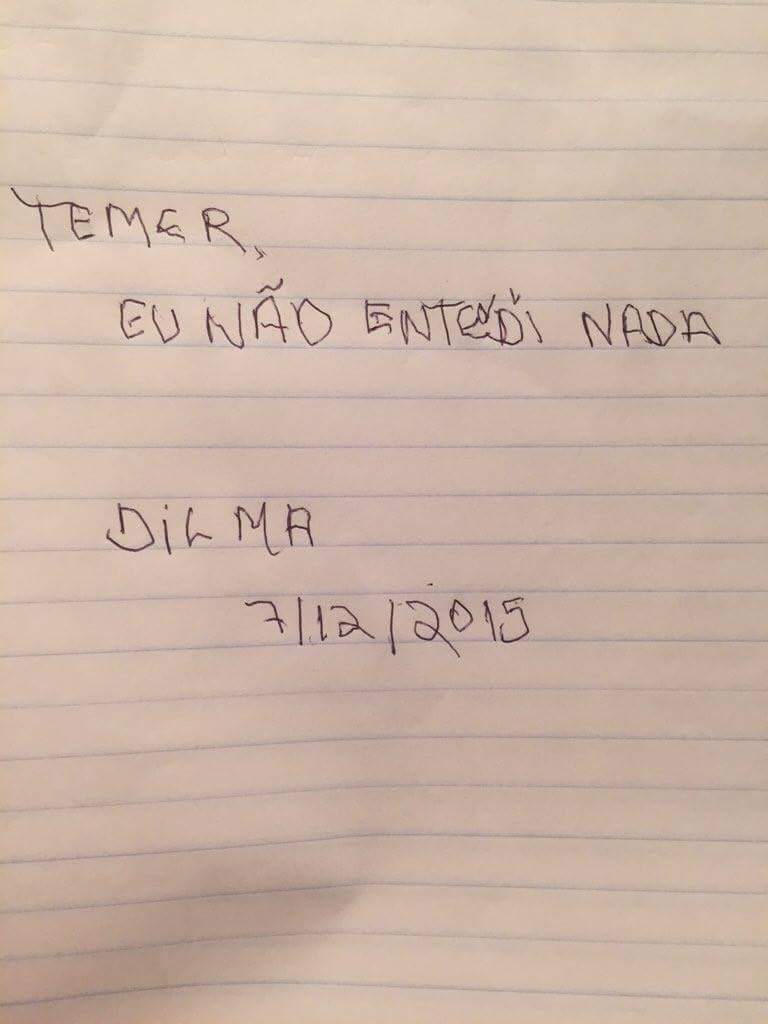 TEMER,
EU NÃO ENTEDI NADA
DILMA
7/12/2015